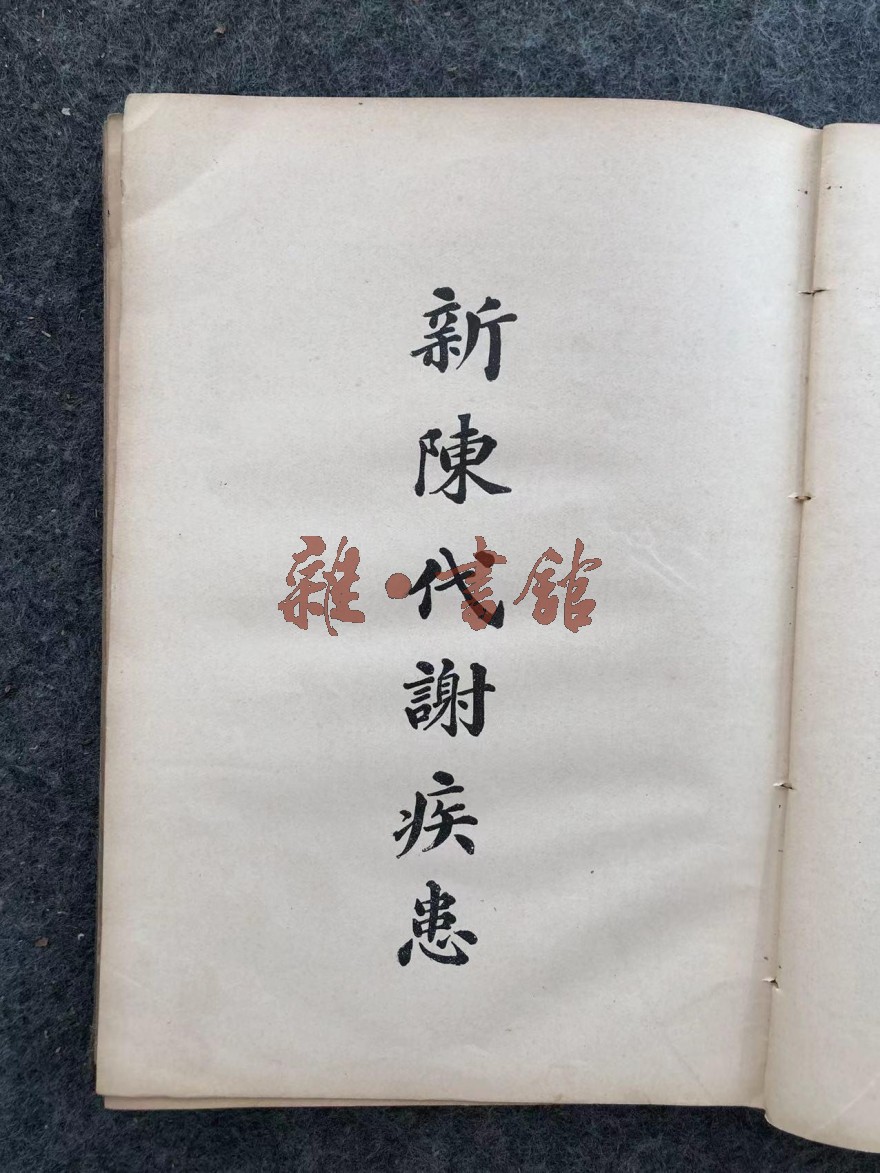 新陳代謝疾患
雜·書館